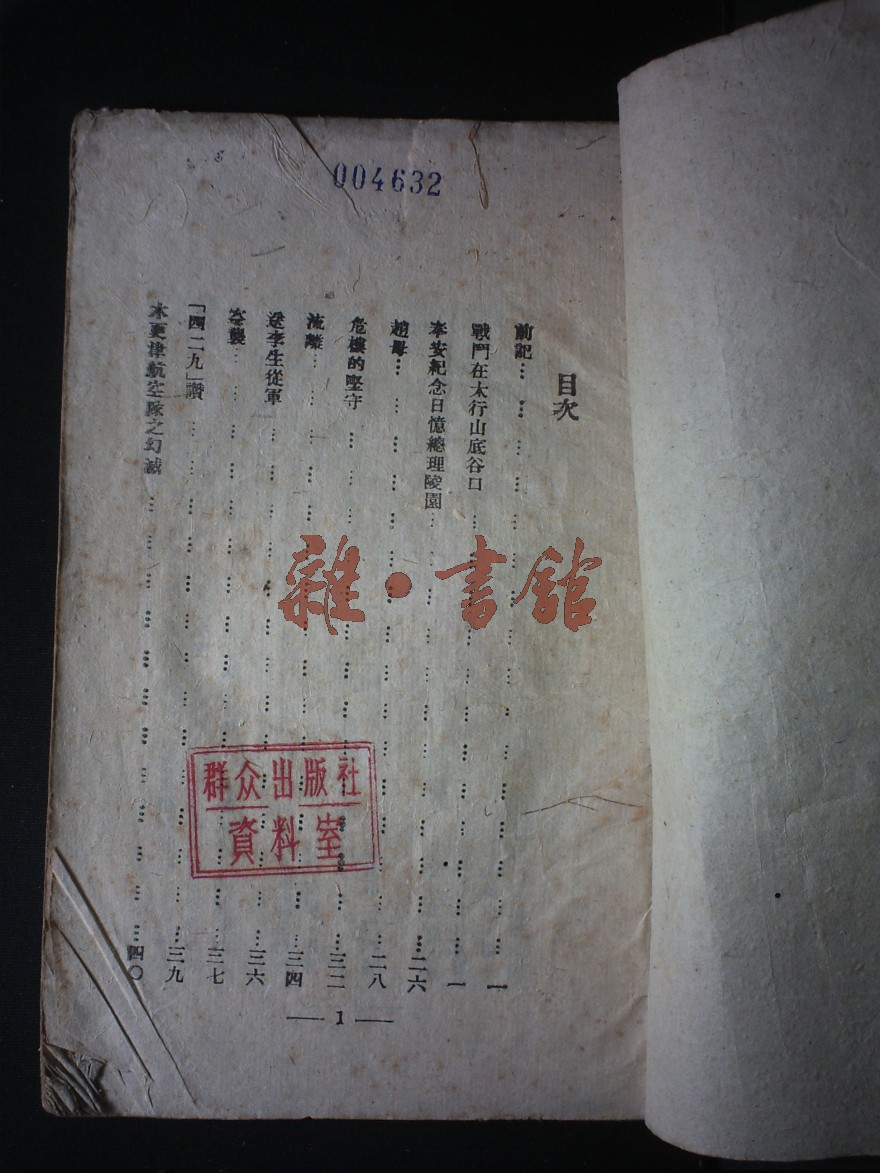 004632
目次
前記…………一
戰鬥在太行山底谷口…………一
奉安紀念日憶總理陵園…………二六
趙母…………二八
危樓的堅守…………三二
流離…………三四
送李生從軍…………三六
空襲…………三七
「四二九」讚…………三九
木更津航空隊之幻滅…………四〇
— 1 —
雜·書館
群众出版社
資料室